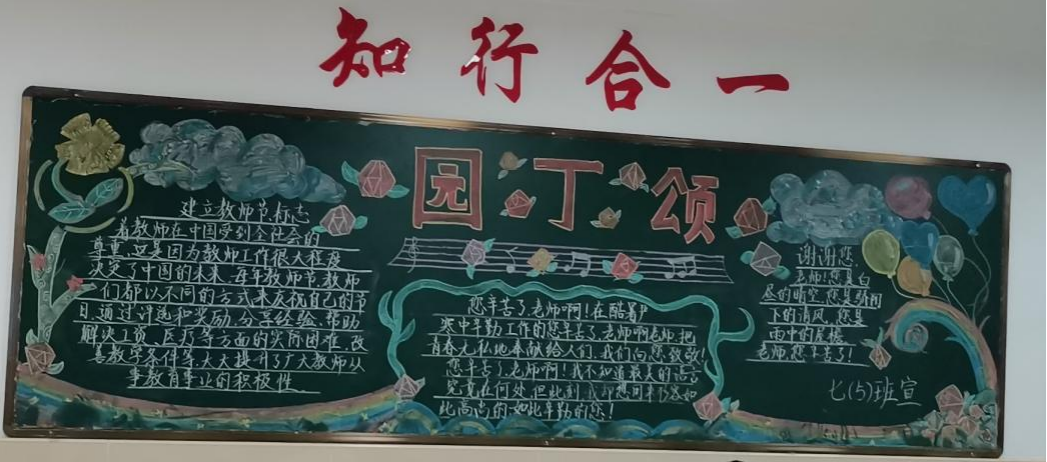 知行合一
园丁颂
建立教师节标志
着教师在中国受到全社会的
尊重这是因为教师工作很大程度
决定了中国的未来 每年教师节教师
们都以不同的方式来庆祝自己的节
日通过评选和奖励 分享经验 帮助
解决工资 医疗等方面的实际困难 改
善教学条件等大大提升了广大教师从
事教育事业的积极性
您辛苦了老师啊!在酷暑
寒中辛勤工作的您辛苦了老师啊老师 把
青春无私地奉献给人们 我们向您致敬!
您辛苦了老师啊!我不知道最美的语言
究竟在何处 但此刻
此高高的 如此辛勤的您!
谢谢您
老师!您是白
昼的晴空 您是骄阳
下的清风 您是
雨中的屋檐
老师 您辛苦了!
七(5)班宣